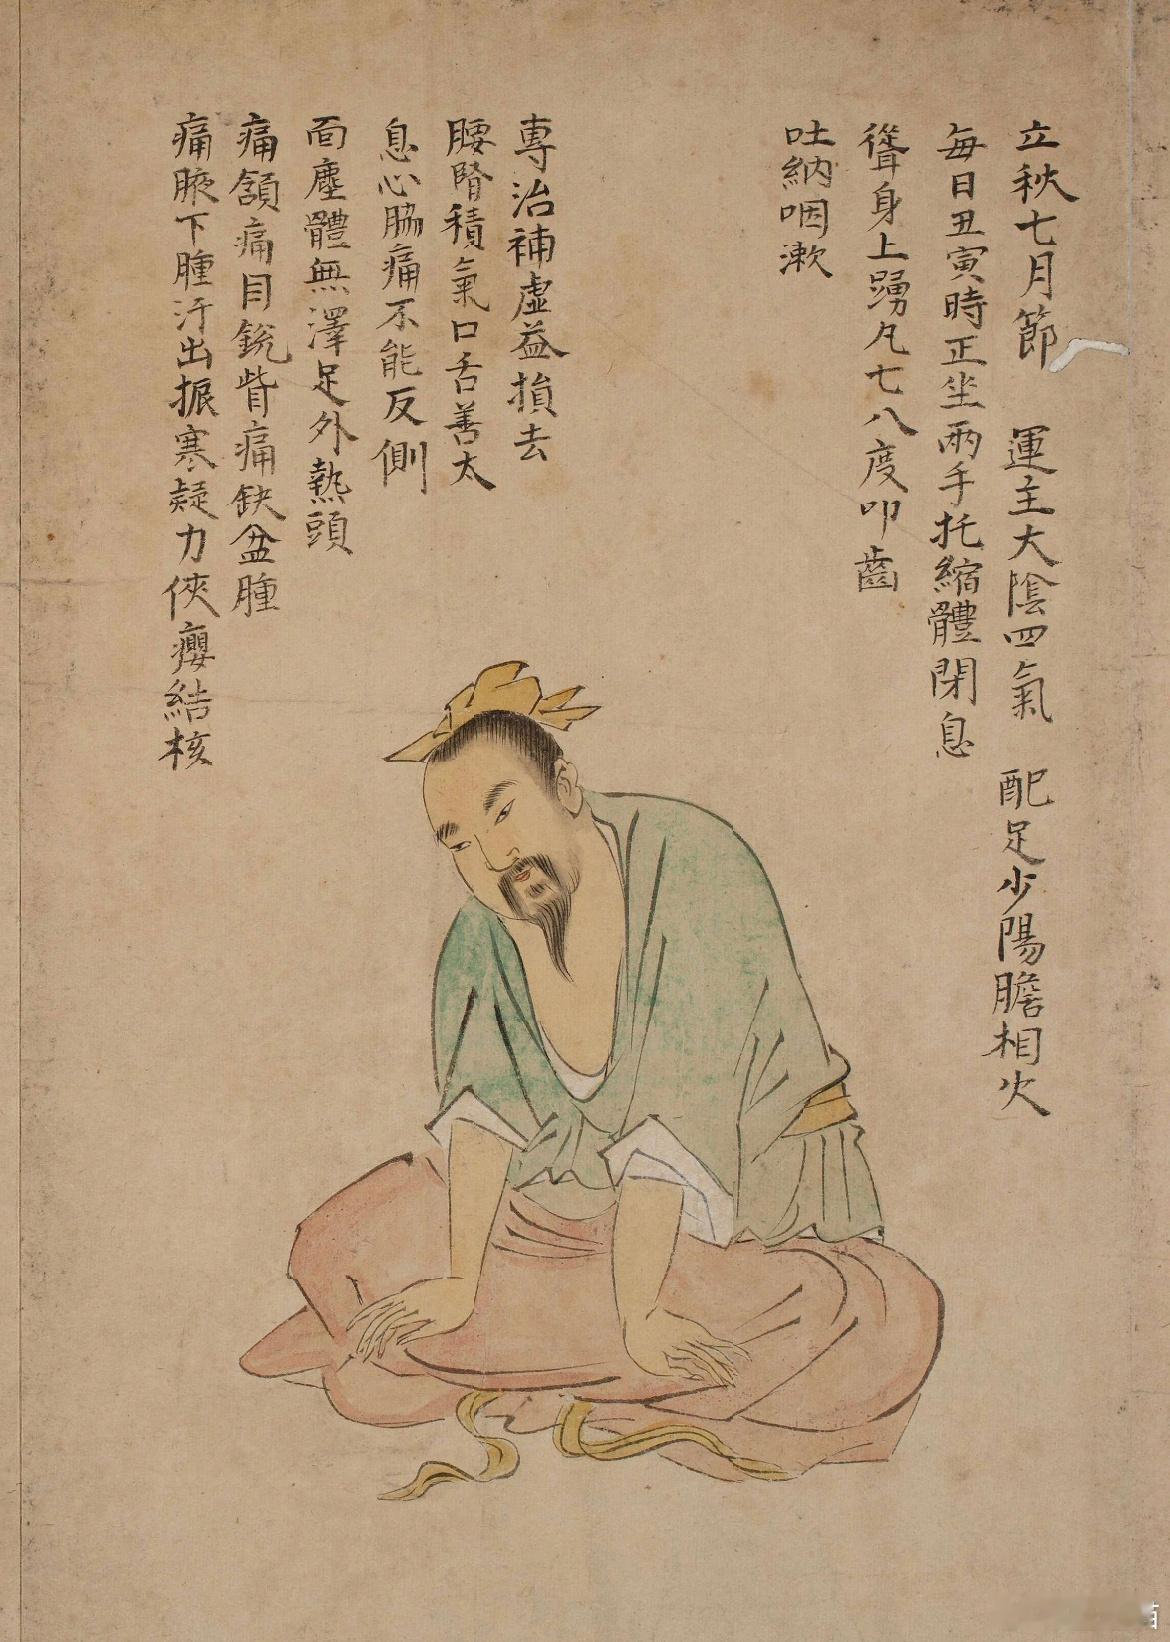 立秋七月節　運主大陰四氣　配足少陽膽相火
毎日丑寅時正坐兩手托縮體閉息
聳身上踴凡七八度叩齒
吐納咽漱
專治補虛益損去
腰腎積氣口舌善太
息心脇痛不能反側
面塵體無澤足外熱頭
痛頷痛目銳眥痛缺盆腫
痛腋下腫汗出振寒疑力俠癭結核